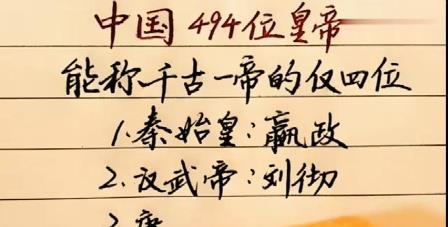 中国494位皇帝
能称千古一帝的仅四位
1.秦始皇:嬴政
2.汉武帝:刘彻